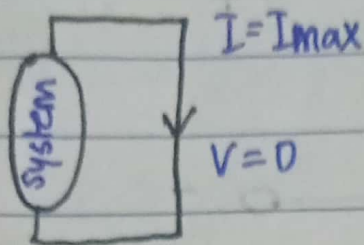 I=Imax
system
V=0